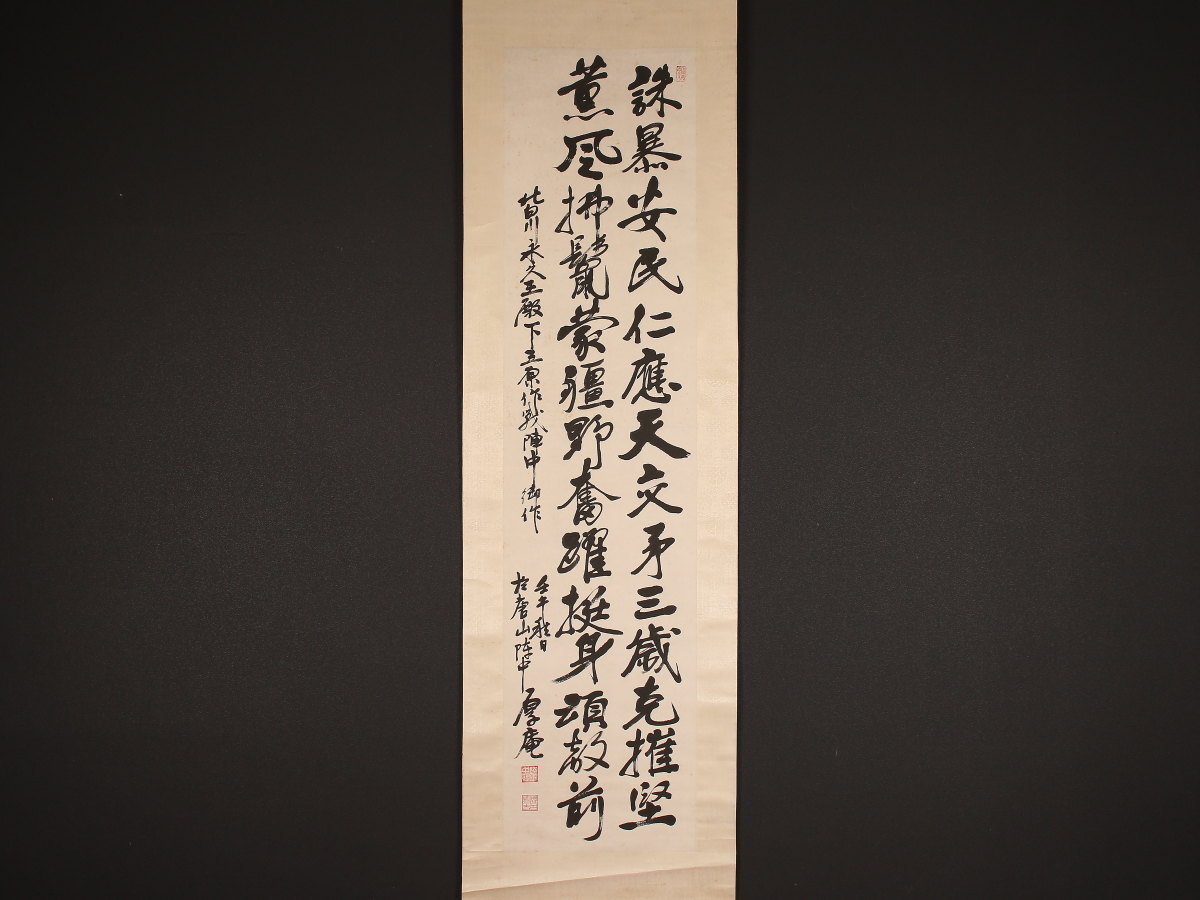 誅暴安民仁應天交矛三歳克摧堅
薫風拂鬣蒙疆野奮躍挺身頌敵前
北白川永久王殿下五原作戦陣中御作
壬午秋日
於唐山陣中 厚庵